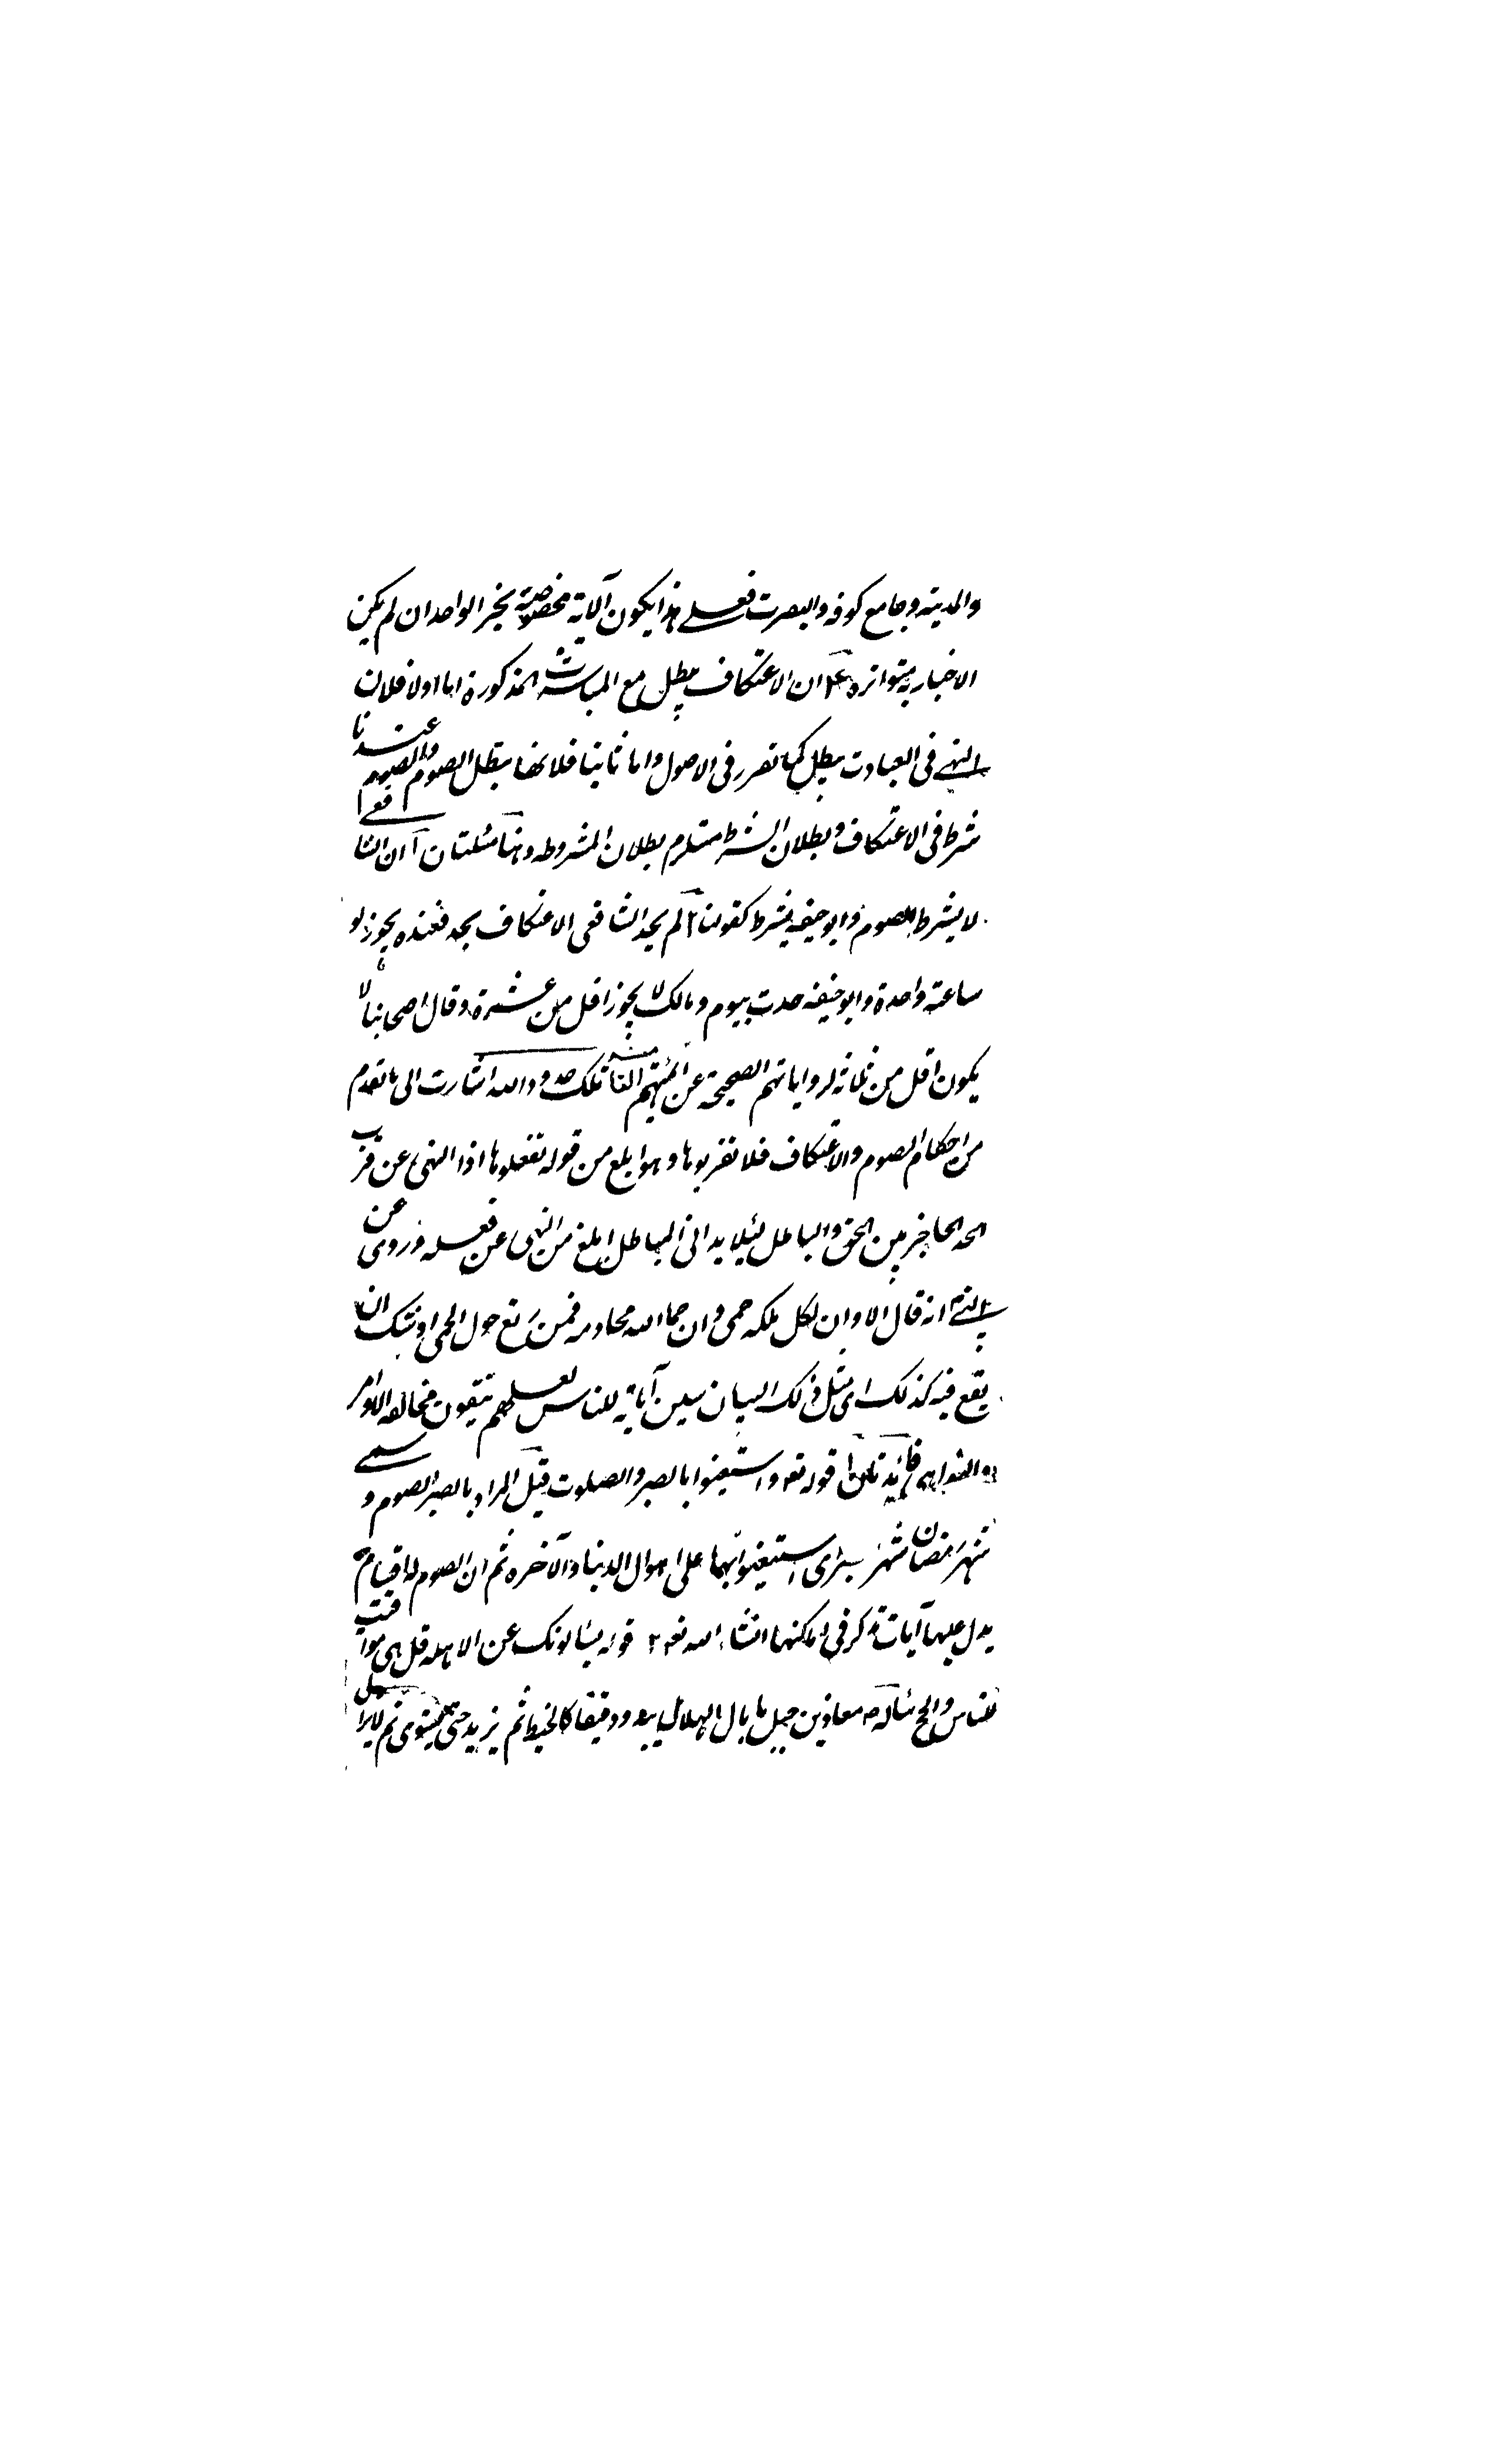 والمدينه وجامع كوفه والبصرت فعلى هذا يكون الآية مخصصة بخبر الواحد ان لم يكن
الاخبار متواتره ٤ ان الاعتكاف يبطل مع المباشرت المذكورة اما اولا فلان
النهى فى العبادت يبطل كما تقرر فى الاصول واما ثانيا فلانها يبطل الصوم والصوم عندنا
شرط فى الاعتكاف وبطلان الشرط مستلزم بطلان المشروطه وهنا مسئلتان آ ان الشافعى
لا يشرط الصوم وابو حنيفه يشرط كقولنا ٢ لم يحد الشافعى الاعتكاف بحد فعنده يجوز لو
ساعة واحدة وابو حنيفه حدت بيوم ومالك لا يجوز اقل من عشرة وقال اصحابنا لا
يكون اقل من ثلثه لرواياتهم الصحيحة عن ائمتهم تلك حدود الله اشارت الى ما تقدم
من احكام الصوم والاعتكاف فلا تقربوها وهو ابلغ من قوله تفعلوها اذا النهى عن قرب
الحد الحاجز بين الحق والباطل ليلا يدانى الباطل ابلغ من النهى عن فعله وروى عن
النبى انه قال الا وان لكل ملك حمى وان حما الله محارمه فمن رتع حول الحمى اوشك ان
يقع فيه كذلك اى مثل ذلك البيان يبين آياته للناس لعلهم يتقون مخالفه الاوامر
والنواهى فائدتان آ قوله تع واستعينوا بالصبر والصلوت قيل المراد بالصبر الصوم وسمى
شهر رمضان شهر صبر اى استعينوا بهما على اهوال الدنيا والآخره ثم ان الصوم له اقسام
يدل عليها آيات تذكر فى اماكنها انشاء الله تع ٢ قوله يسالونك عن الاهله قل هى مواقيت
للناس والحج ساله معاذ بن جبل ما بال الهلال يبدو دقيقا كالخيط ثم يزيد حتى يستوى ثم لايزال